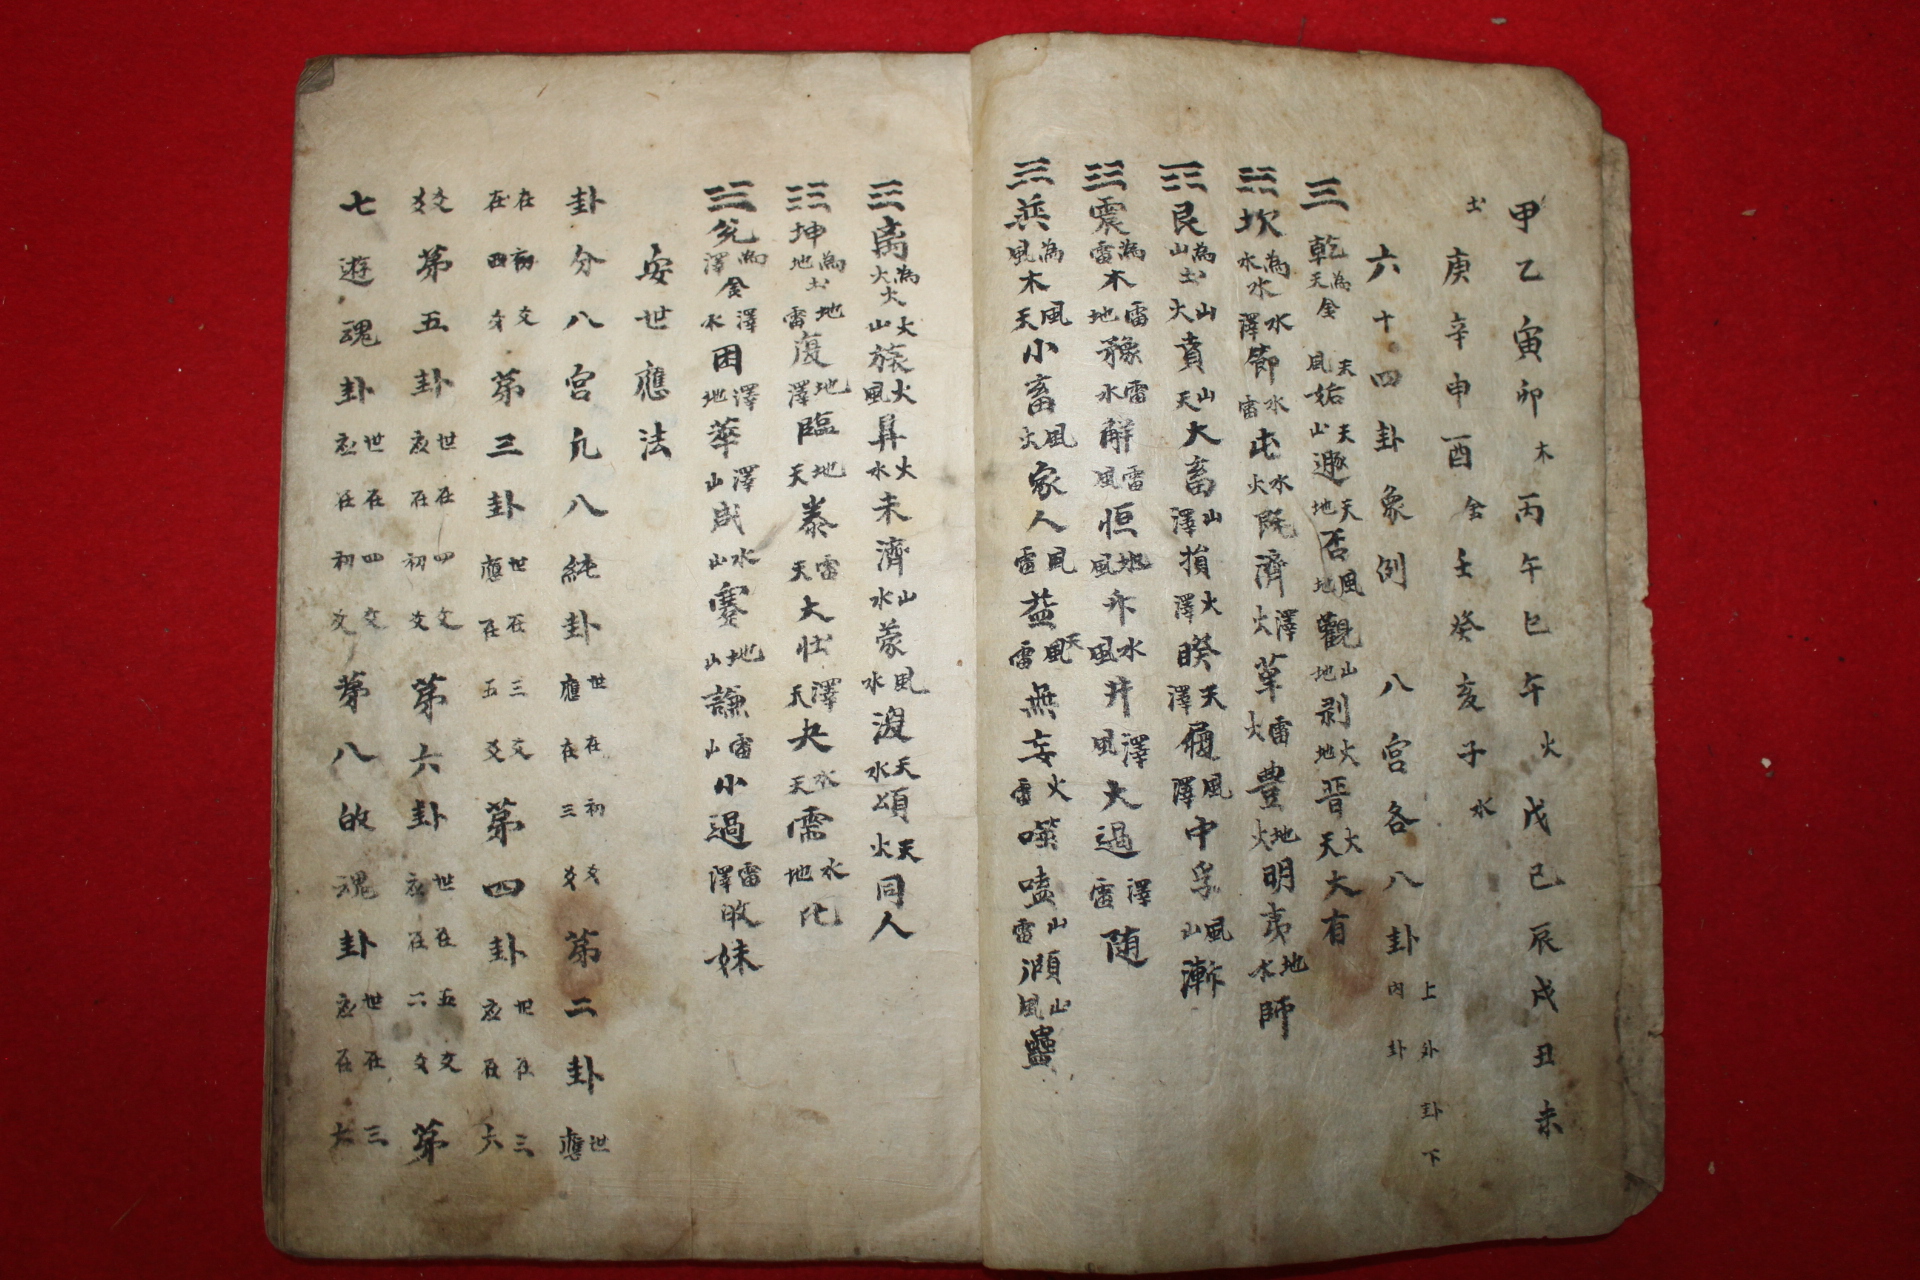 甲乙寅卯木丙午巳午火戊己辰戌丑未
土庚辛申酉金壬癸亥子水
六十四卦象例 八宮各八卦上外卦下內卦
☰乾為天金 天風姤天山遯天地否風地觀山地剥火地晋火天大有
☵坎為水水水澤節水雷屯水火既濟澤火革雷火豊地火明夷地水師
☶艮為山土山火賁山天大畜山澤損火澤睽天澤履風澤中孚風山漸
☳震為雷木雷地豫雷水解雷風恒地風升水風井澤風大過澤雷随
☴巽為風木風天小畜風火家人風雷益天風雷無妄火雷噬嗑山雷頤山風蠱
☲离為火火火山旅火風鼎火水未濟山水蒙風水渙天水頌天火同人
☷坤為地土地雷復地澤臨地天泰雷天大壮澤天夬水天需水地比
☱兊為澤金澤水困澤地萃澤山咸水山蹇地山謙雷山小過雷澤歸妹
安世應法
卦分八宮凢八純卦世應在在初三爻爻苐二卦世應
在在初四爻爻苐三卦世應在在三五爻爻苐四卦世应在在三六
爻爻苐五卦世应在在四初爻爻苐六卦世应在在五二爻爻苐
七遊魂卦世应在在四初爻爻苐八歸魂卦世应在在三六